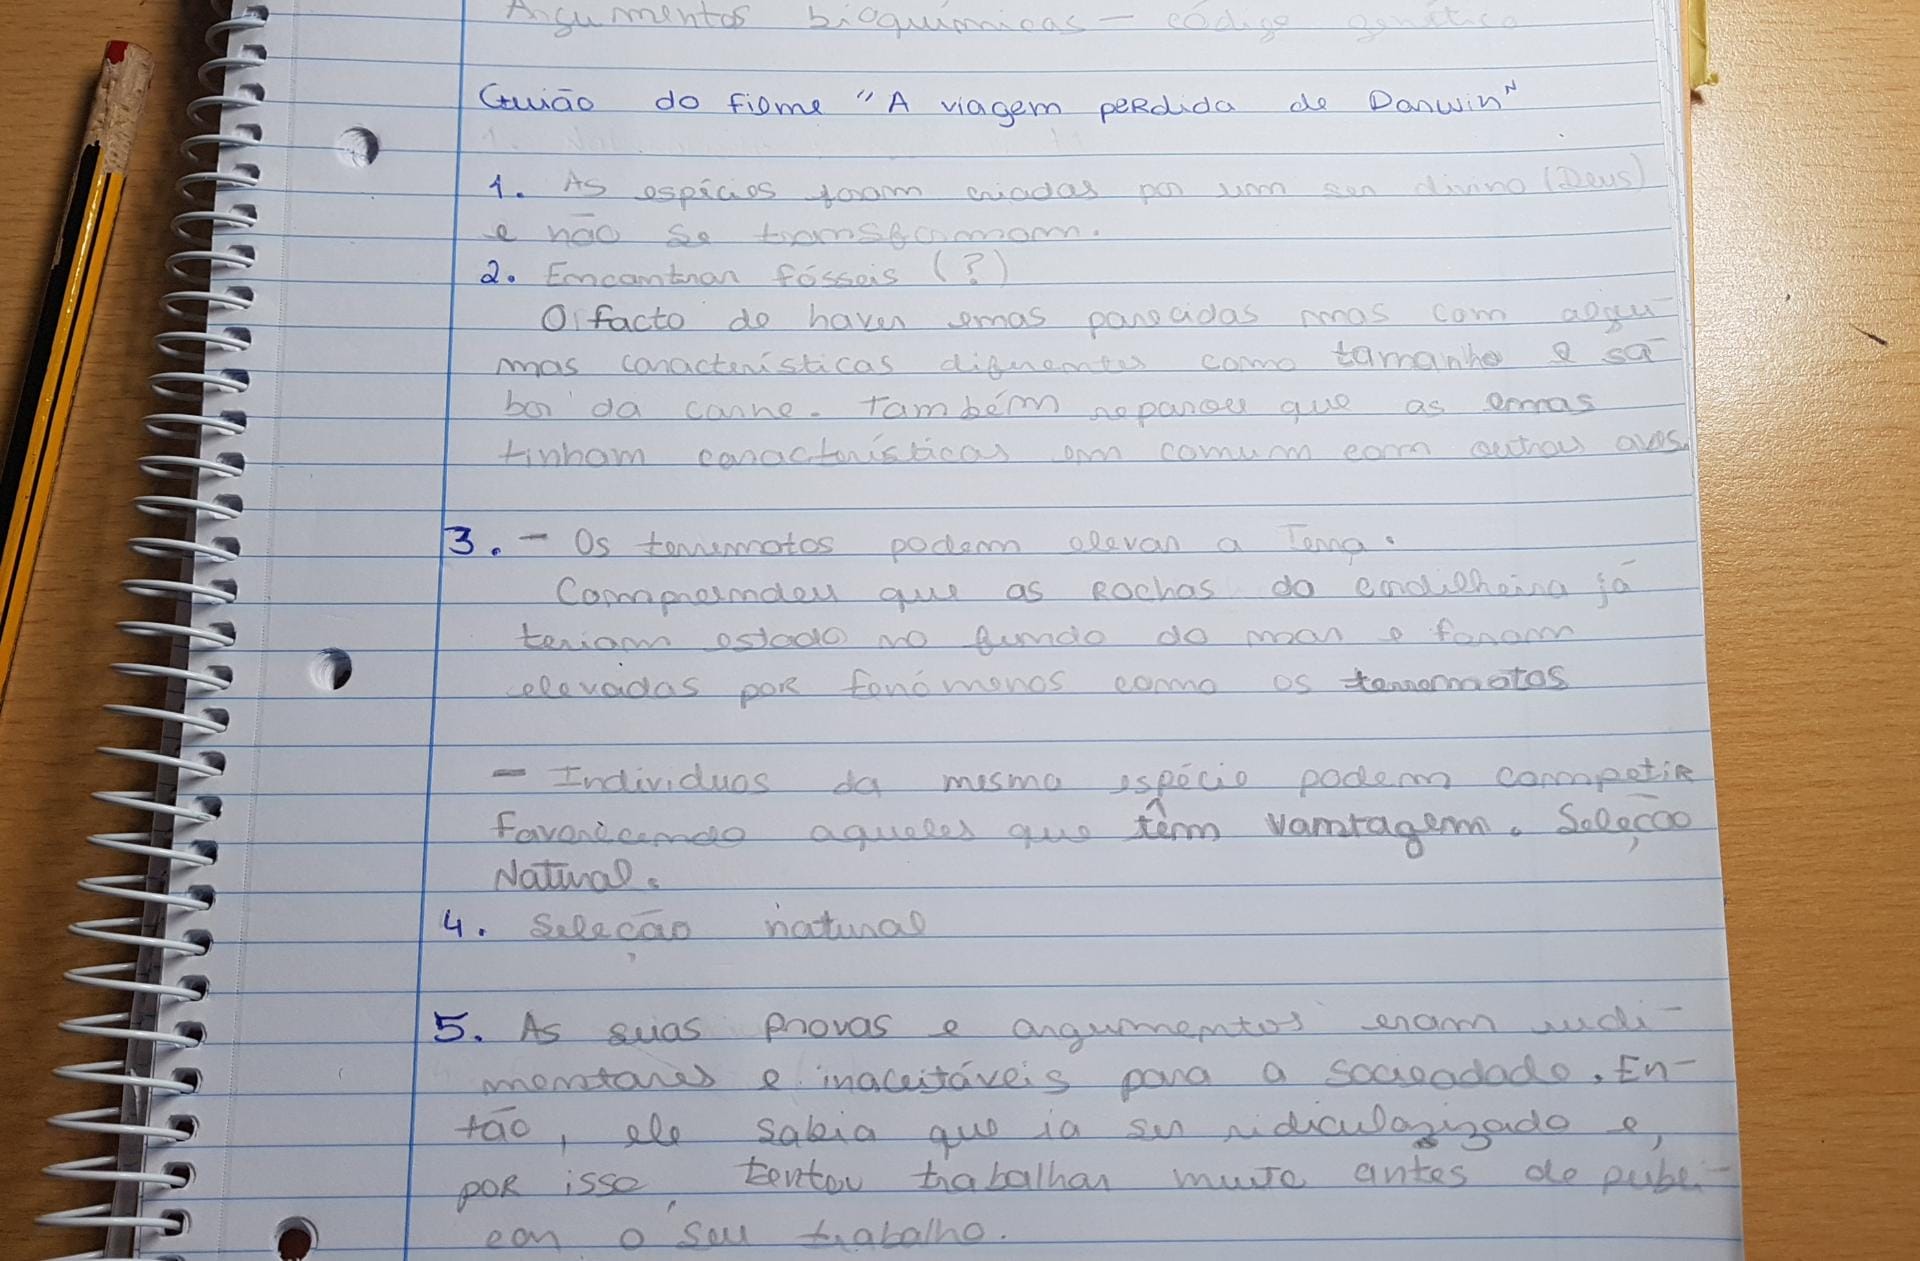 Argumentos bioquímicos - código genético
Guião do filme "A viagem perdida de Darwin"
1. As espécies foram criadas por um ser divino (Deus)
e não se transformam.
2. Encontrar fósseis (?)
O facto de haver emas parecidas mas com algu-
mas características diferentes como tamanho e sa-
bor da carne. Também reparou que as emas
tinham características em comum com outras aves
3. - Os terremotos podem elevar a Terra.
Compreendeu que as rochas da cordilheira já
teriam estado no fundo do mar e foram
elevadas por fenómenos como os terremotos
- Individuos da mesma espécie podem competir
favorecendo aqueles que têm vantagem. Seleção
Natural.
4. Seleção natural
5. As suas provas e argumentos eram rudi-
mentares e inaceitáveis para a sociedade. En-
tão, ele sabia que ia ser ridicularizado e,
por isso, tentou trabalhar muito antes de publi-
car o seu trabalho.